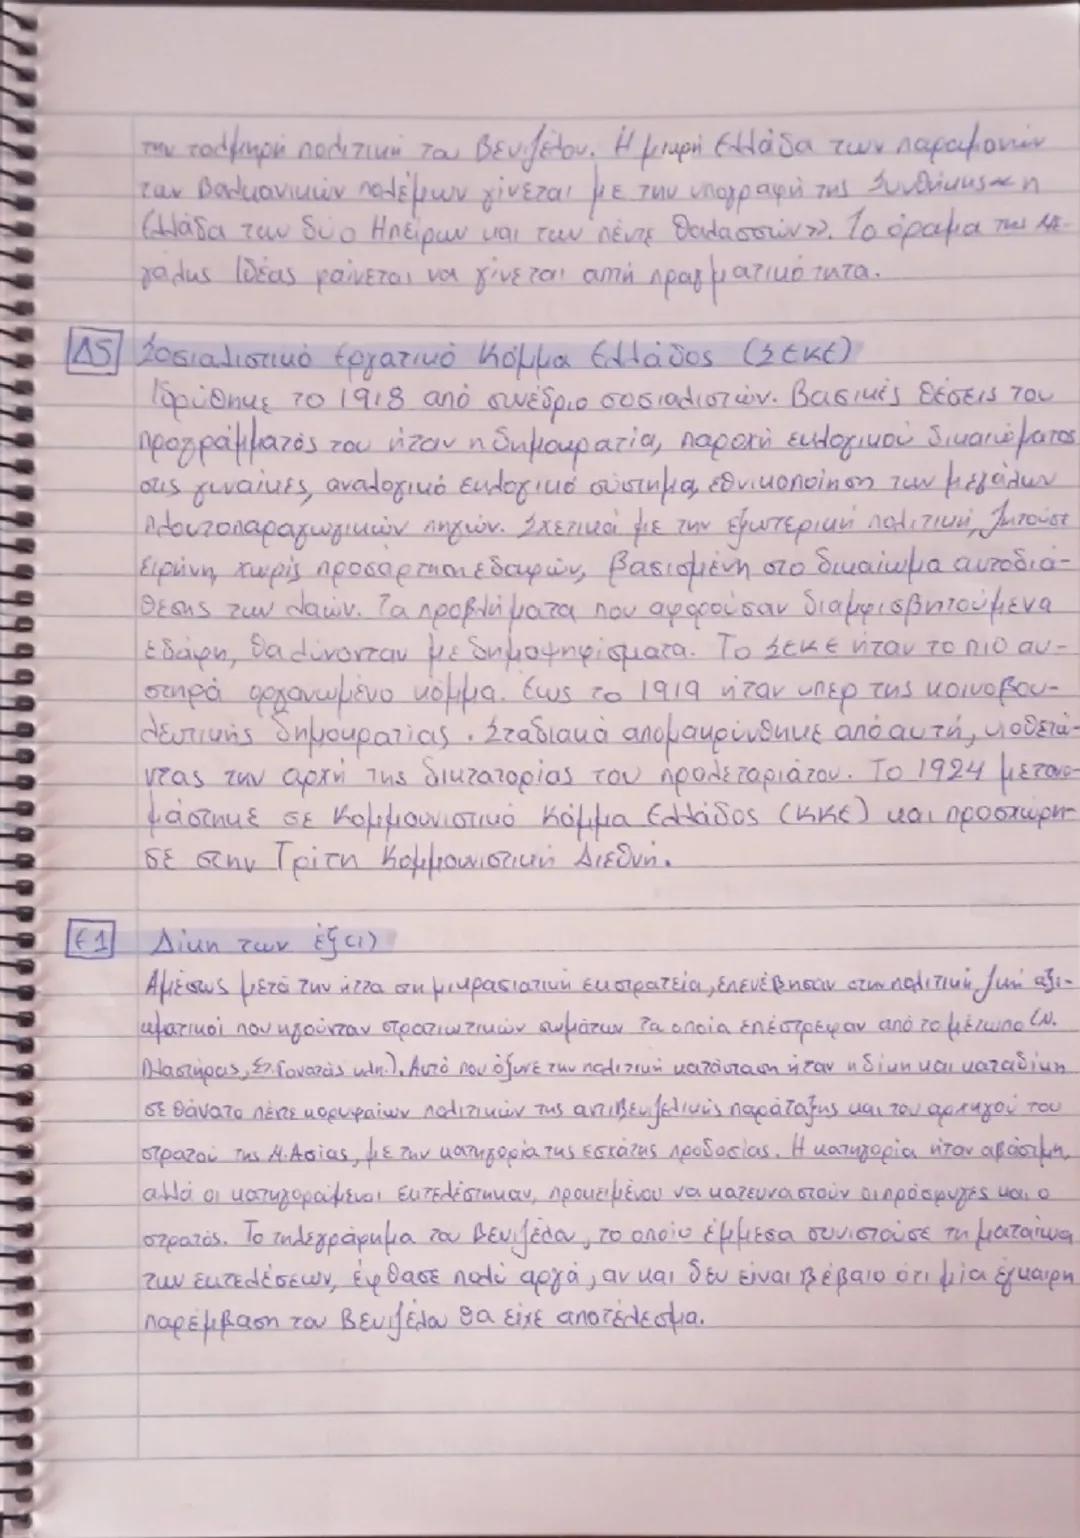 την τολμηρή πολιτική του Βενιζέλου. Η μικρή Ελλάδα των παραμονών
των Βαλκανικών πολέμων γίνεται με την υπογραφή της Συνθήκης «η
Ελλάδα των δύο Ηπείρων και των πέντε θαλασσών». Το όραμα της Με-
γάλης Ιδέας φαίνεται να γίνεται απτή πραγματικότητα.
Δ5 Σοσιαλιστικό Εργατικό Κόμμα Ελλάδος (ΣΕΚΕ)
Ιδρύθηκε το 1918 από συνέδριο σοσιαλιστών. Βασικές θέσεις του
προγράμματός του ήταν η δημοκρατία, παροχή εκλογικού δικαιώματος
στις γυναίκες, αναλογικό εκλογικό σύστημα, εθνικοποίηση των μεγάλων
πλουτοπαραγωγικών πηγών. Σχετικά με την εξωτερική πολιτική, ζητούσε
ειρήνη χωρίς προσάρτηση εδαφών, βασισμένη στο δικαίωμα αυτοδιά-
θεσης των λαών. Τα προβλήματα που αφορούσαν διαμφισβητούμενα
εδάφη, θα λύνονταν με δημοψηφίσματα. Το ΣΕΚΕ ήταν το πιο αυ-
στηρά οργανωμένο κόμμα. Έως το 1919 ήταν υπέρ της κοινοβου-
λευτικής δημοκρατίας. Σταδιακά απομακρύνθηκε από αυτή, υιοθετώ-
ντας την αρχή της δικτατορίας του προλεταριάτου. Το 1924 μετονο-
μάστηκε σε Κομμουνιστικό Κόμμα Ελλάδος (ΚΚΕ) και προσχώρη-
σε στην Τρίτη Κομμουνιστική Διεθνή.
Ε1 Δίκη των έξ(ι)
Αμέσως μετά την ήττα στη μικρασιατική εκστρατεία, επενέβησαν στην πολιτική ζωή αξι-
ωματικοί που ηγούνταν στρατιωτικών σωμάτων τα οποία επέστρεψαν από το μέτωπο (Ν.
Πλαστήρας, Στ. Γονατάς κλπ.). Αυτό που όξυνε την πολιτική κατάσταση ήταν η δίκη και καταδίκη
σε θάνατο πέντε κορυφαίων πολιτικών της αντιβενιζελικής παράταξης και του αρχηγού του
στρατού της Μ. Ασίας, με την κατηγορία της εσχάτης προδοσίας. Η κατηγορία ήταν αβάσιμη,
αλλά οι κατηγορούμενοι εκτελέστηκαν, προκειμένου να κατευναστούν οι πρόσφυγες και ο
στρατός. Το τηλεγράφημα του Βενιζέλου, το οποίο έμμεσα συνιστούσε τη ματαίωση
των εκτελέσεων, έφθασε πολύ αργά, αν και δεν είναι βέβαιο ότι μία έγκαιρη
παρέμβαση του Βενιζέλου θα είχε αποτέλεσμα.